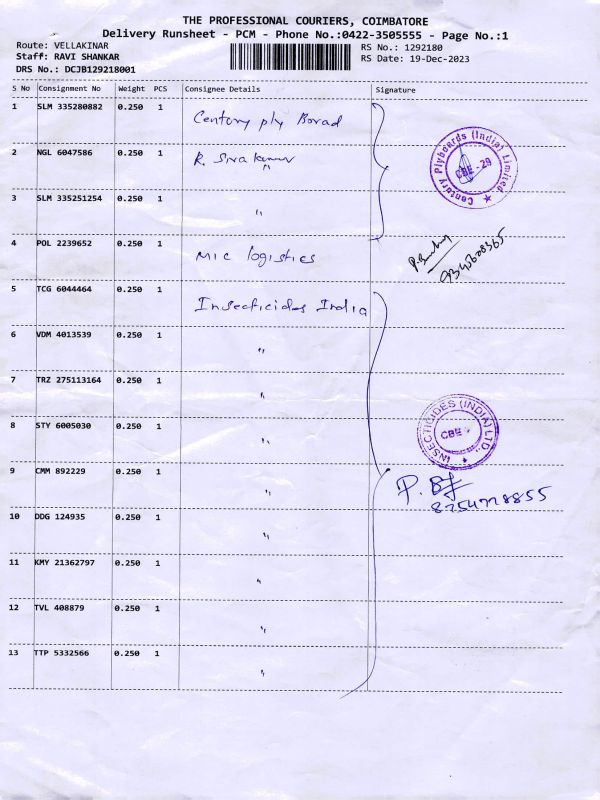 THE PROFESSIONAL COURIERS, COIMBATORE
Delivery Runsheet - PCM - Phone No.:0422-3505555 - Page No.:1
Route: VELLAKINAR RS No.: 1292180
Staff: RAVI SHANKAR RS Date: 19-Dec-2023
DRS No.: DCJB129218001
S No Consignment No Weight PCS Consignee Details Signature
1 SLM 335280882 0.250 1 Century ply Borad
Century Plyboards (India) Limited
CBE - 29
2 NGL 6047586 0.250 1 R. Siva kumar
"
3 SLM 335251254 0.250 1 "
4 POL 2239652 0.250 1 Mic logistics
5 TCG 6044464 0.250 1 Insecticides India
6 VDM 4013539 0.250 1 "
7 TRZ 275113164 0.250 1 "
8 STY 6005030 0.250 1 "
INSECTICIDES (INDIA) LTD.
CBE
9 CMM 892229 0.250 1 "
10 DDG 124935 0.250 1 "
11 KMY 21362797 0.250 1 "
12 TVL 408879 0.250 1 "
13 TTP 5332566 0.250 1 "